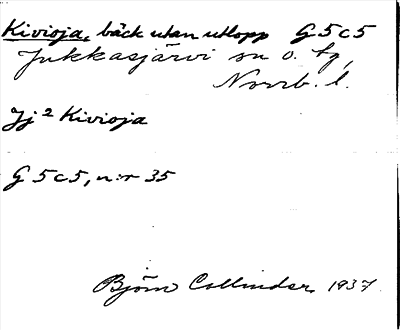 Kivioja, bäck utan utlopp G5c5
Jukkasjärvi sn o. tg,
Norrb. l.
Jj² Kivioja
G5c5, n:r 35
Björn Collinder, 1937